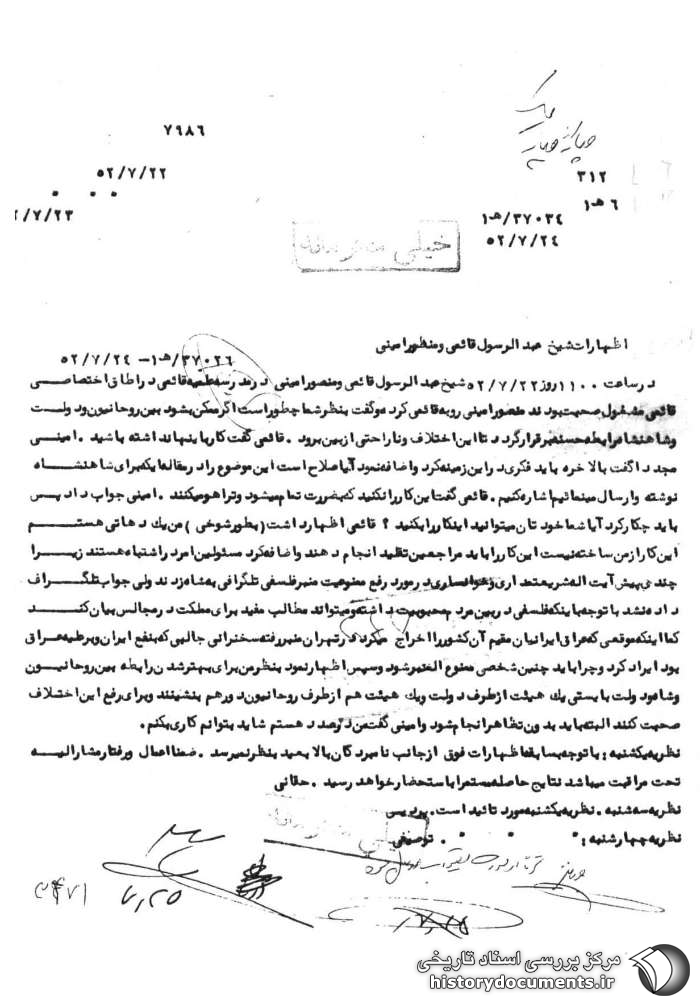 ۷۹۸۶
۵۲/۷/۲۲
/۷/۲۳
۳۱۲
۶ هـ۱
۳۷۰۳۴/هـ۱
۵۲/۷/۲۴
خیلی محرمانه
اظهارات شیخ عبدالرسول قائمی و منصور امینی
۳۷۰۲۶/هـ۱ – ۵۲/۷/۲۴
در ساعت ۱۱۰۰ روز ۵۲/۷/۲۲ شیخ عبدالرسول قائمی و منصور امینی در مدرسه علمیه قائمی در اطاق اختصاصی
قائمی مشغول صحبت بودند منصور امینی رو به قائمی کرده و گفت بنظر شما چطور است اگر ممکن بشود بین روحانیون و دولت
و شاهنشاه رابطه حسنه برقرار گردد تا این اختلاف و ناراحتی از بین برود . قائمی گفت کار با ینها نداشته باشید . امینی
مجددا گفت بالاخره باید فکری در این زمینه کرد و اضافه نمود آیا صلاح است این موضوع را در مقاله ایکه برای شاهنشاه
نوشته و ارسال مینمائیم اشاره کنیم . قائمی گفت این کار را نکنید که بضررت تمام میشود و ترا هو میکنند . امینی جواب داد پس
باید چکار کرد آیا شما خودتان میتوانید اینکار را بکنید ؟ قائمی اظهار داشت (بطور شوخی) من یک دهاتی هستم
این کار از من ساخته نیست این کار را باید مراجعین تقلید انجام دهند و اضافه کرد مسئولین امر در اشتباه هستند زیرا
چندی پیش آیت اله شریعتمداری و خوانساری در مورد رفع ممنوعیت منبر فلسفی تلگرافی به شاه زدند ولی جواب تلگراف
داده نشد با توجه با ینکه فلسفی در بین مردم محبوبیت داشته و میتواند مطالب مفید برای مملکت در مجالس بیان کند
کما اینکه موقعی که عراق ایرانیان مقیم آن کشور را اخراج میکرد در تهران منبر رفته سخنرانی جالبی که بنفع ایران و برعلیه عراق
بود ایراد کرد و چرا باید چنین شخصی ممنوع المنبر شود و سپس اظهار نمود بنظر من برای بهتر شدن رابطه بین روحانیون
و شاه دولت بایستی یک هیئت از طرف دولت و یک هیئت هم از طرف روحانیون دور هم بنشینند و برای رفع این اختلاف
صحبت کنند البته باید بدون تظاهر انجام شود و امینی گفت من در صدد هستم شاید بتوانم کاری بکنم .
نظریه یکشنبه : با توجه بسابقه اظهارات فوق از جانب نامبردگان بالا بعید بنظر نمیرسد . ضمنا اعمال و رفتار مشارالیه
تحت مراقبت میباشد نتایج حاصله مستمرا با ستحضار خواهد رسید . حقانی
نظریه سه شنبه . نظریه یکشنبه مورد تائید است . پردیس
نظریه چهارشنبه : " " " . توصیفی
خیلی محرمانه
۷/۲۵
مرکز بررسی اسناد تاریخی
historydocuments.ir